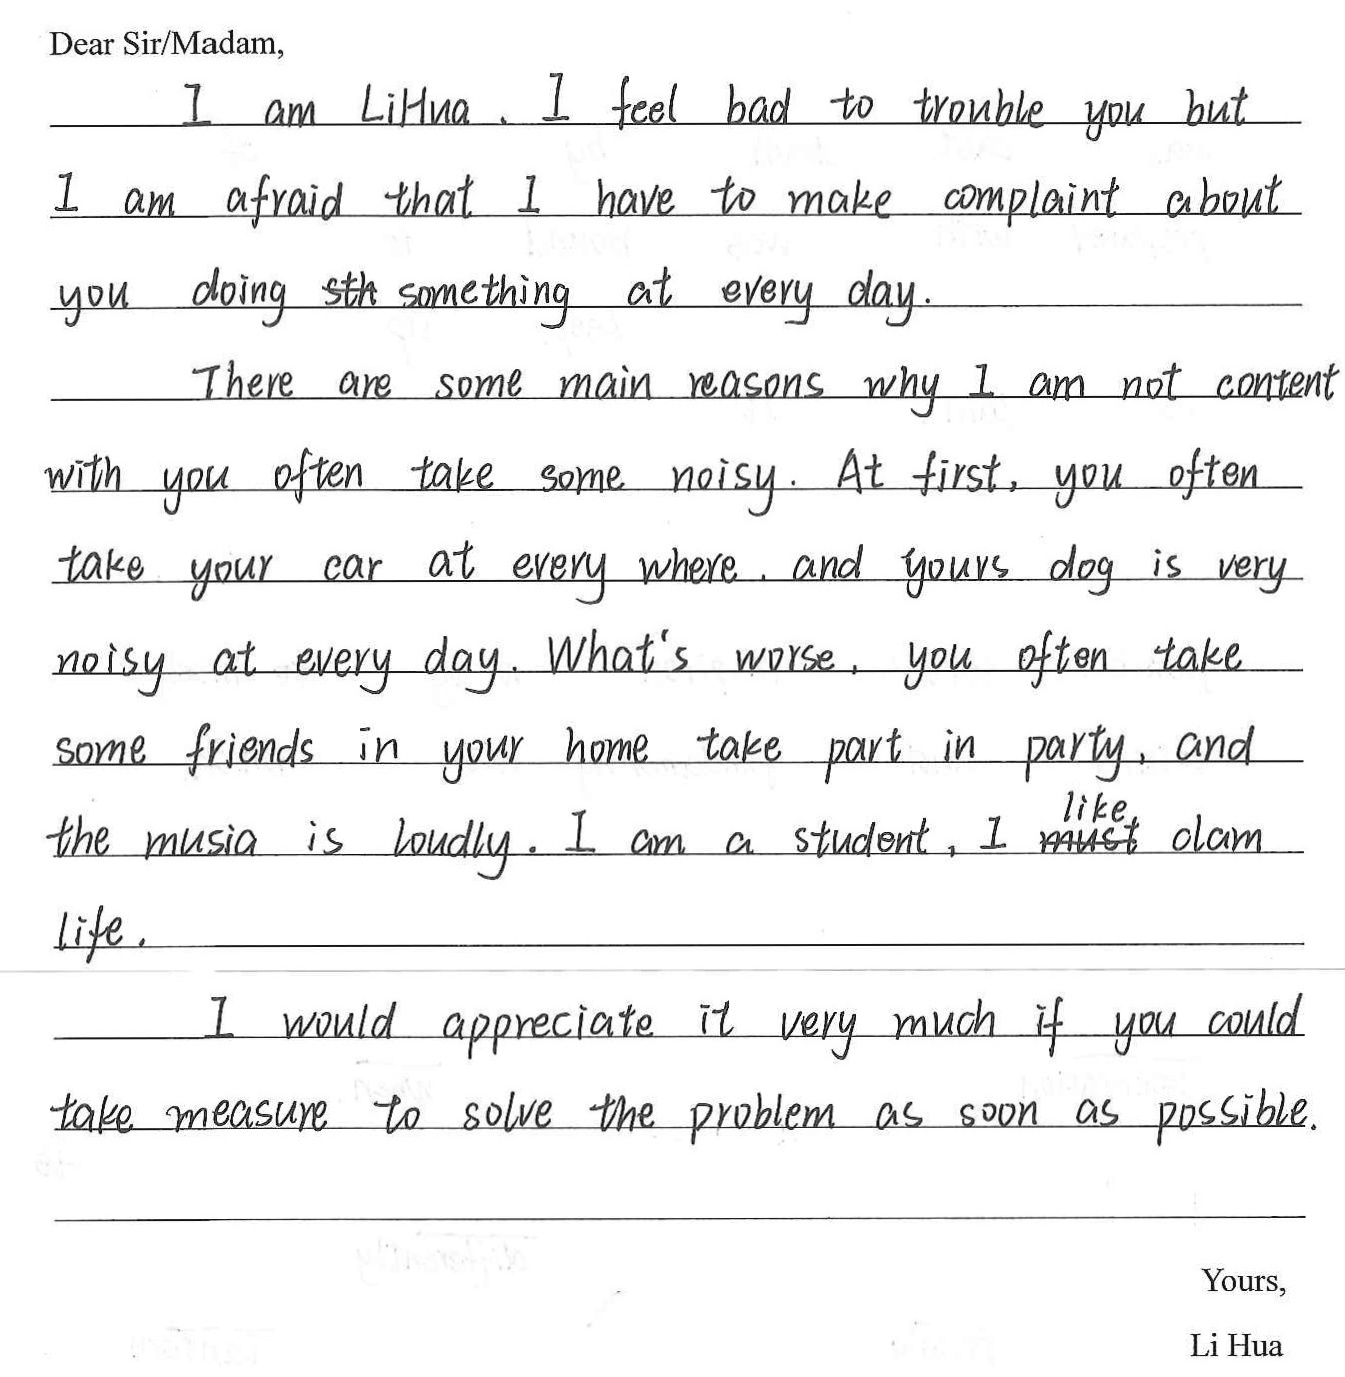 Dear Sir/Madam,
I am LiHua. I feel bad to trouble you but
I am afraid that I have to make complaint about
you doing sth something at every day.
There are some main reasons why I am not content
with you often take some noisy. At first, you often
take your car at every where. and yours dog is very
noisy at every day. What's worse, you often take
some friends in your home take part in party, and
the musia is loudly. I am a student, I must like clam
life.
I would appreciate it very much if you could
take measure to solve the problem as soon as possible.
Yours,
Li Hua